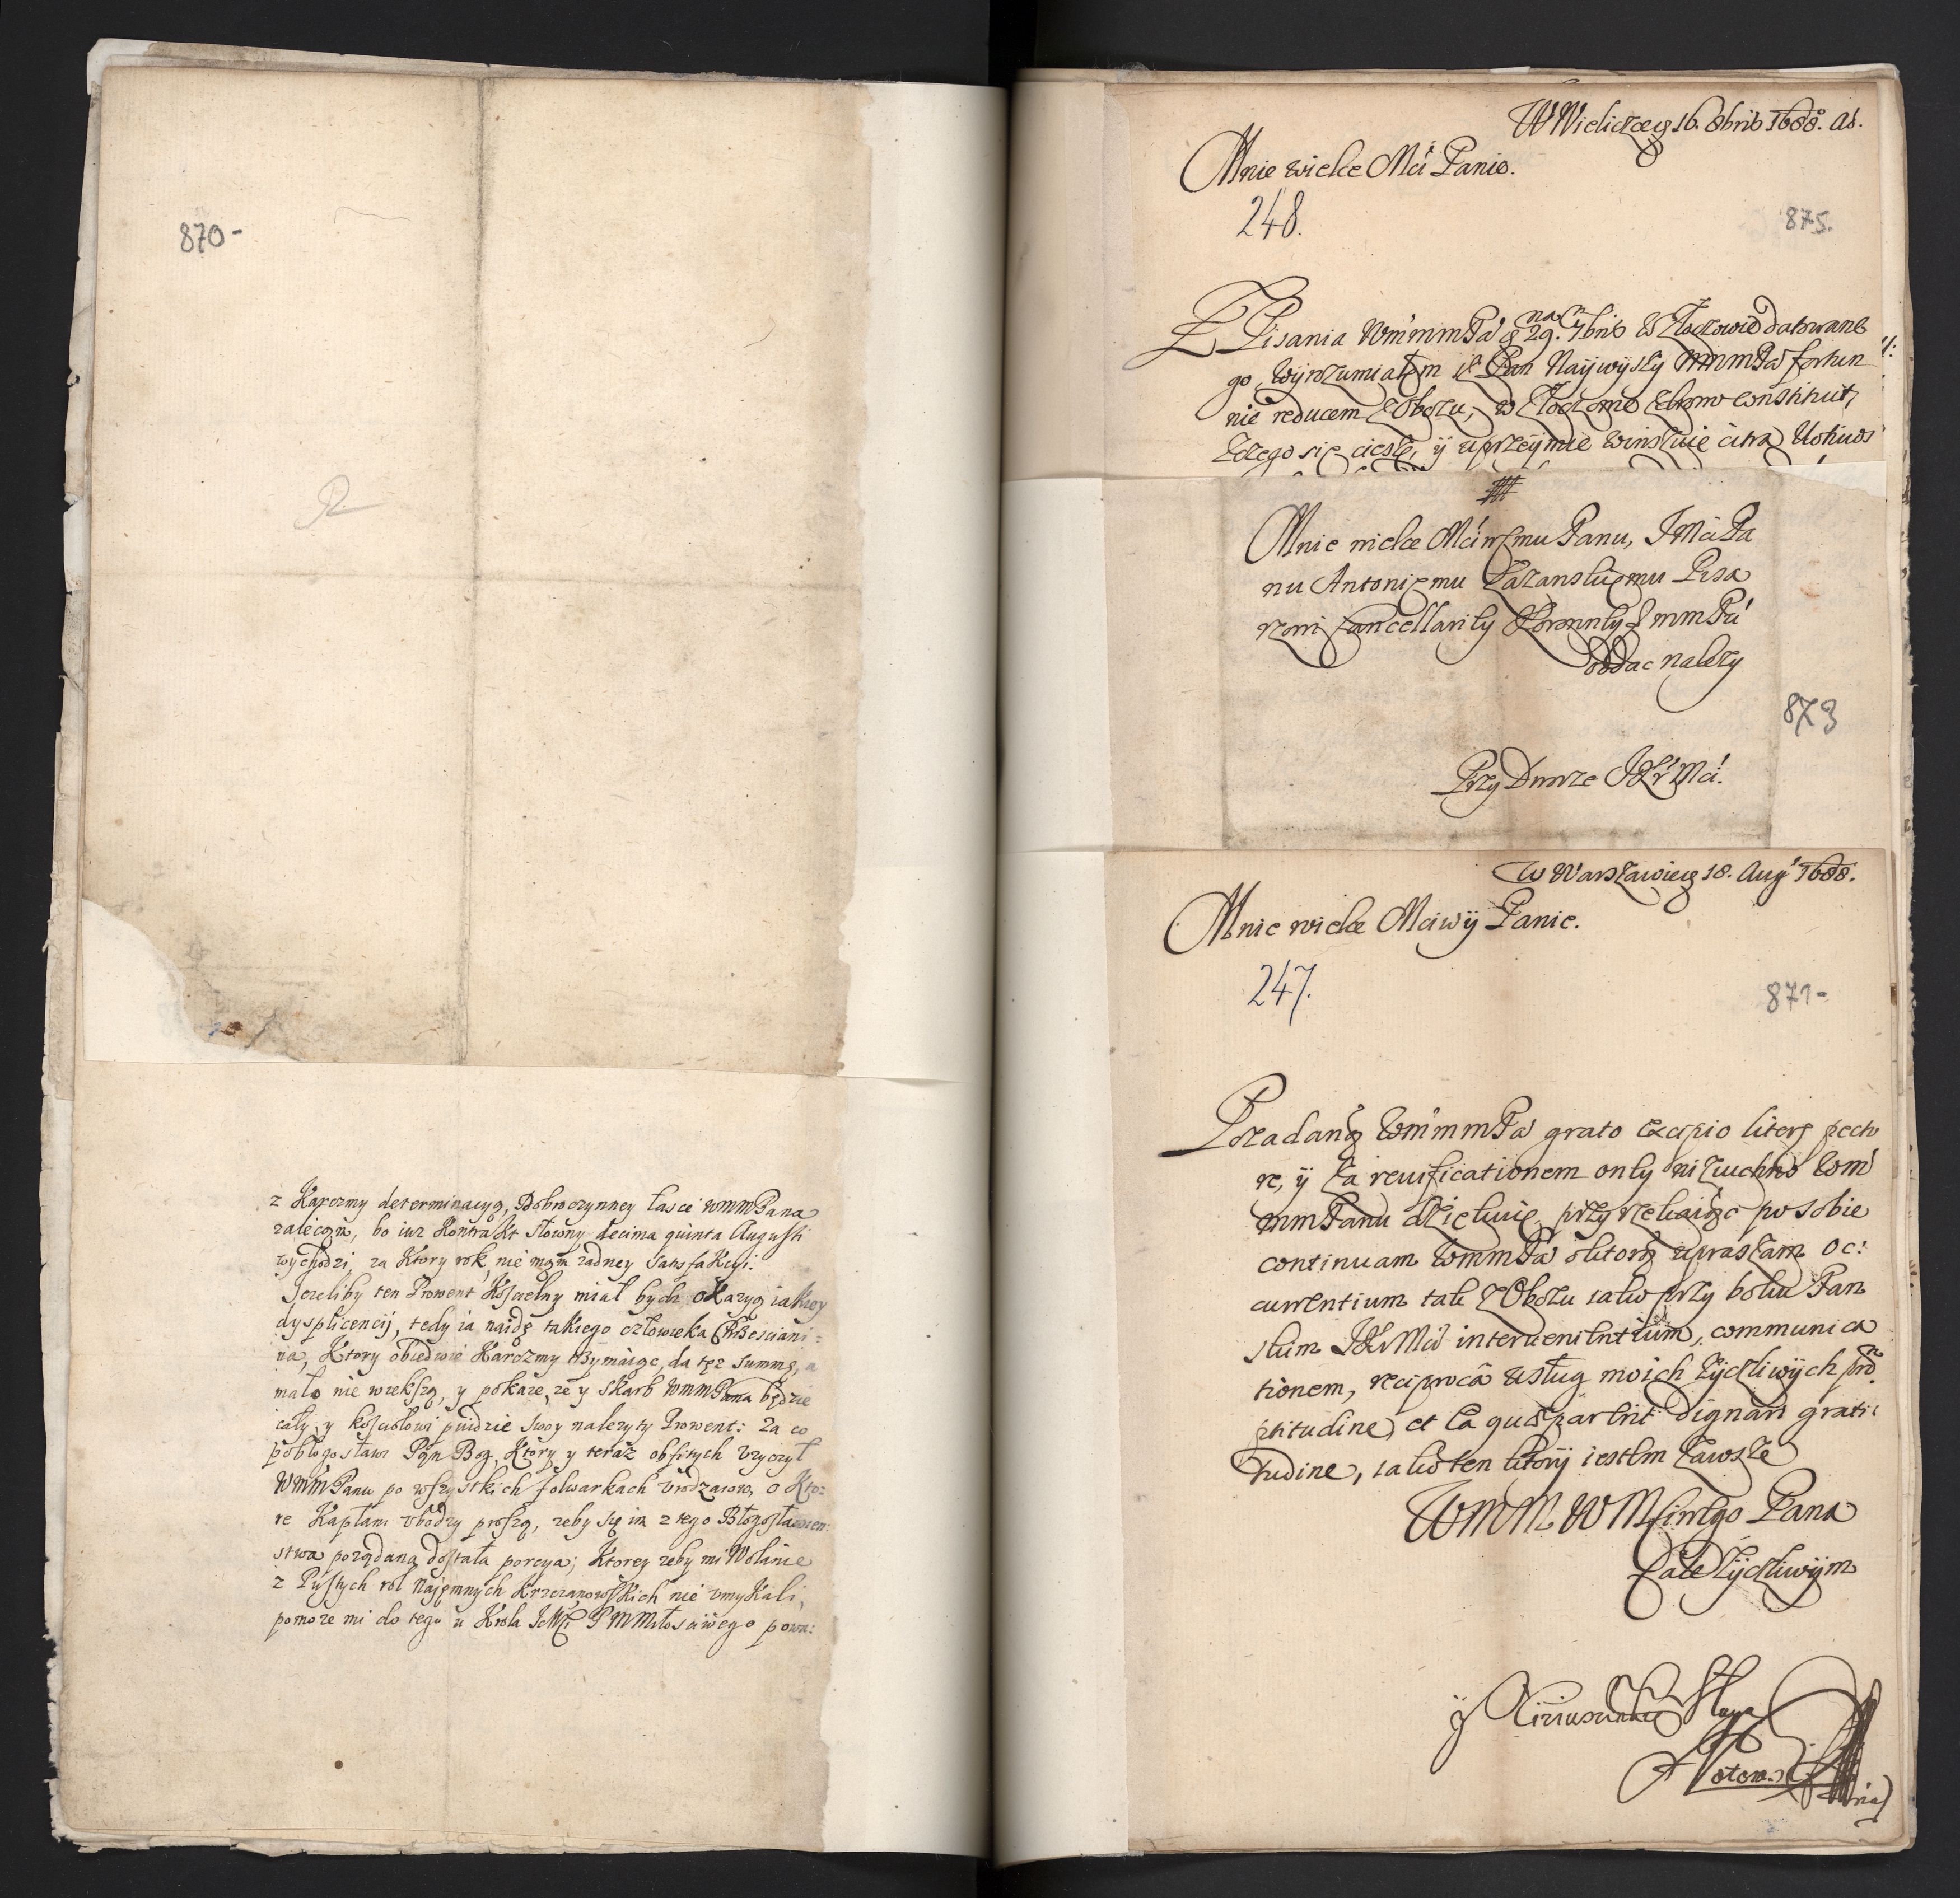 870-
z Karczmy determinacyą, Dobroczynney łasce WMMPana
zalecam, bo iuz Kontrakt słowny decima quinta Augusti
wychodzi, za Ktory rok nie mam zadney satisfakcyi.
Jezeliby ten Prowent Koscielny miał bydz okazyą iakiey
dysplicencij, tedy ia naidę takiego człowieka Chrzesciani=
na, Ktory obiedwie Karczmy trzymaiąc, da tęz summę, a
mało nie wiekszą, y pokaze, ze y skarb WMMPana będzie
cały, y kosciołowi puidzie swoy nalezyty Prowent: Za co
pobłogosławi Pan Bog, Ktory y teraz obfitych vzyczył
WMMPanu po wszystkich folwarkach vrodzaiow, o Kto=
re Kapłani vbodzy proszą, zeby się im z tego Błogosławien=
stwa poządana dostała porcya; Ktorey zeby mi Wolanie
z Pustych rol Najemnych Krzczonowskich nie vmykali,
pomoze mi do tego u Krola JcMci PMMiłosciwego powa:
W Wieliczce 16. 8bris 1688. Ad.
Mnie wielce Mci Panie.
248.
875.
Z Pisania WmmmPa na 29. 7bris w Złoczowie datowane
go, wyrozumiałem isz Pan Naywyszy MmmPa fortun
nie reducem z Obozu, w Złoczowie zdrowo constituit,
z czego się ciesze, ij uprzeymie winszuie citra
Mnie wielce Mciwemu Panu, JMci Pa
nu Antoniemu Pisa
rzowi Cancellariey Koronney mmPu
oddac nalezy
873
Przy Dworze JKrMci.
W Warszawie 18. Aug 1688.
Mnie wielce Mciwy Panie.
247.
871-
Pozadane WmmmPa grato excipio litery pecto
re, y za revificationem oney nizuchno Wm
mmPanu dziekuie, przyrzekaiąc po sobie
continuam WmmmPa upraszam oc:
currentium tak z Obozu iako przy boku Pan
skim JKrMci intervenientium, communica
tionem, reciproca usług moich zyczliwych
ptitudine, et ea qua par erit dignari grati
tudine, iako ten ktory iestem zawsze
WMM WMsciwego Pana
Cale zyczliwym
y Sługa